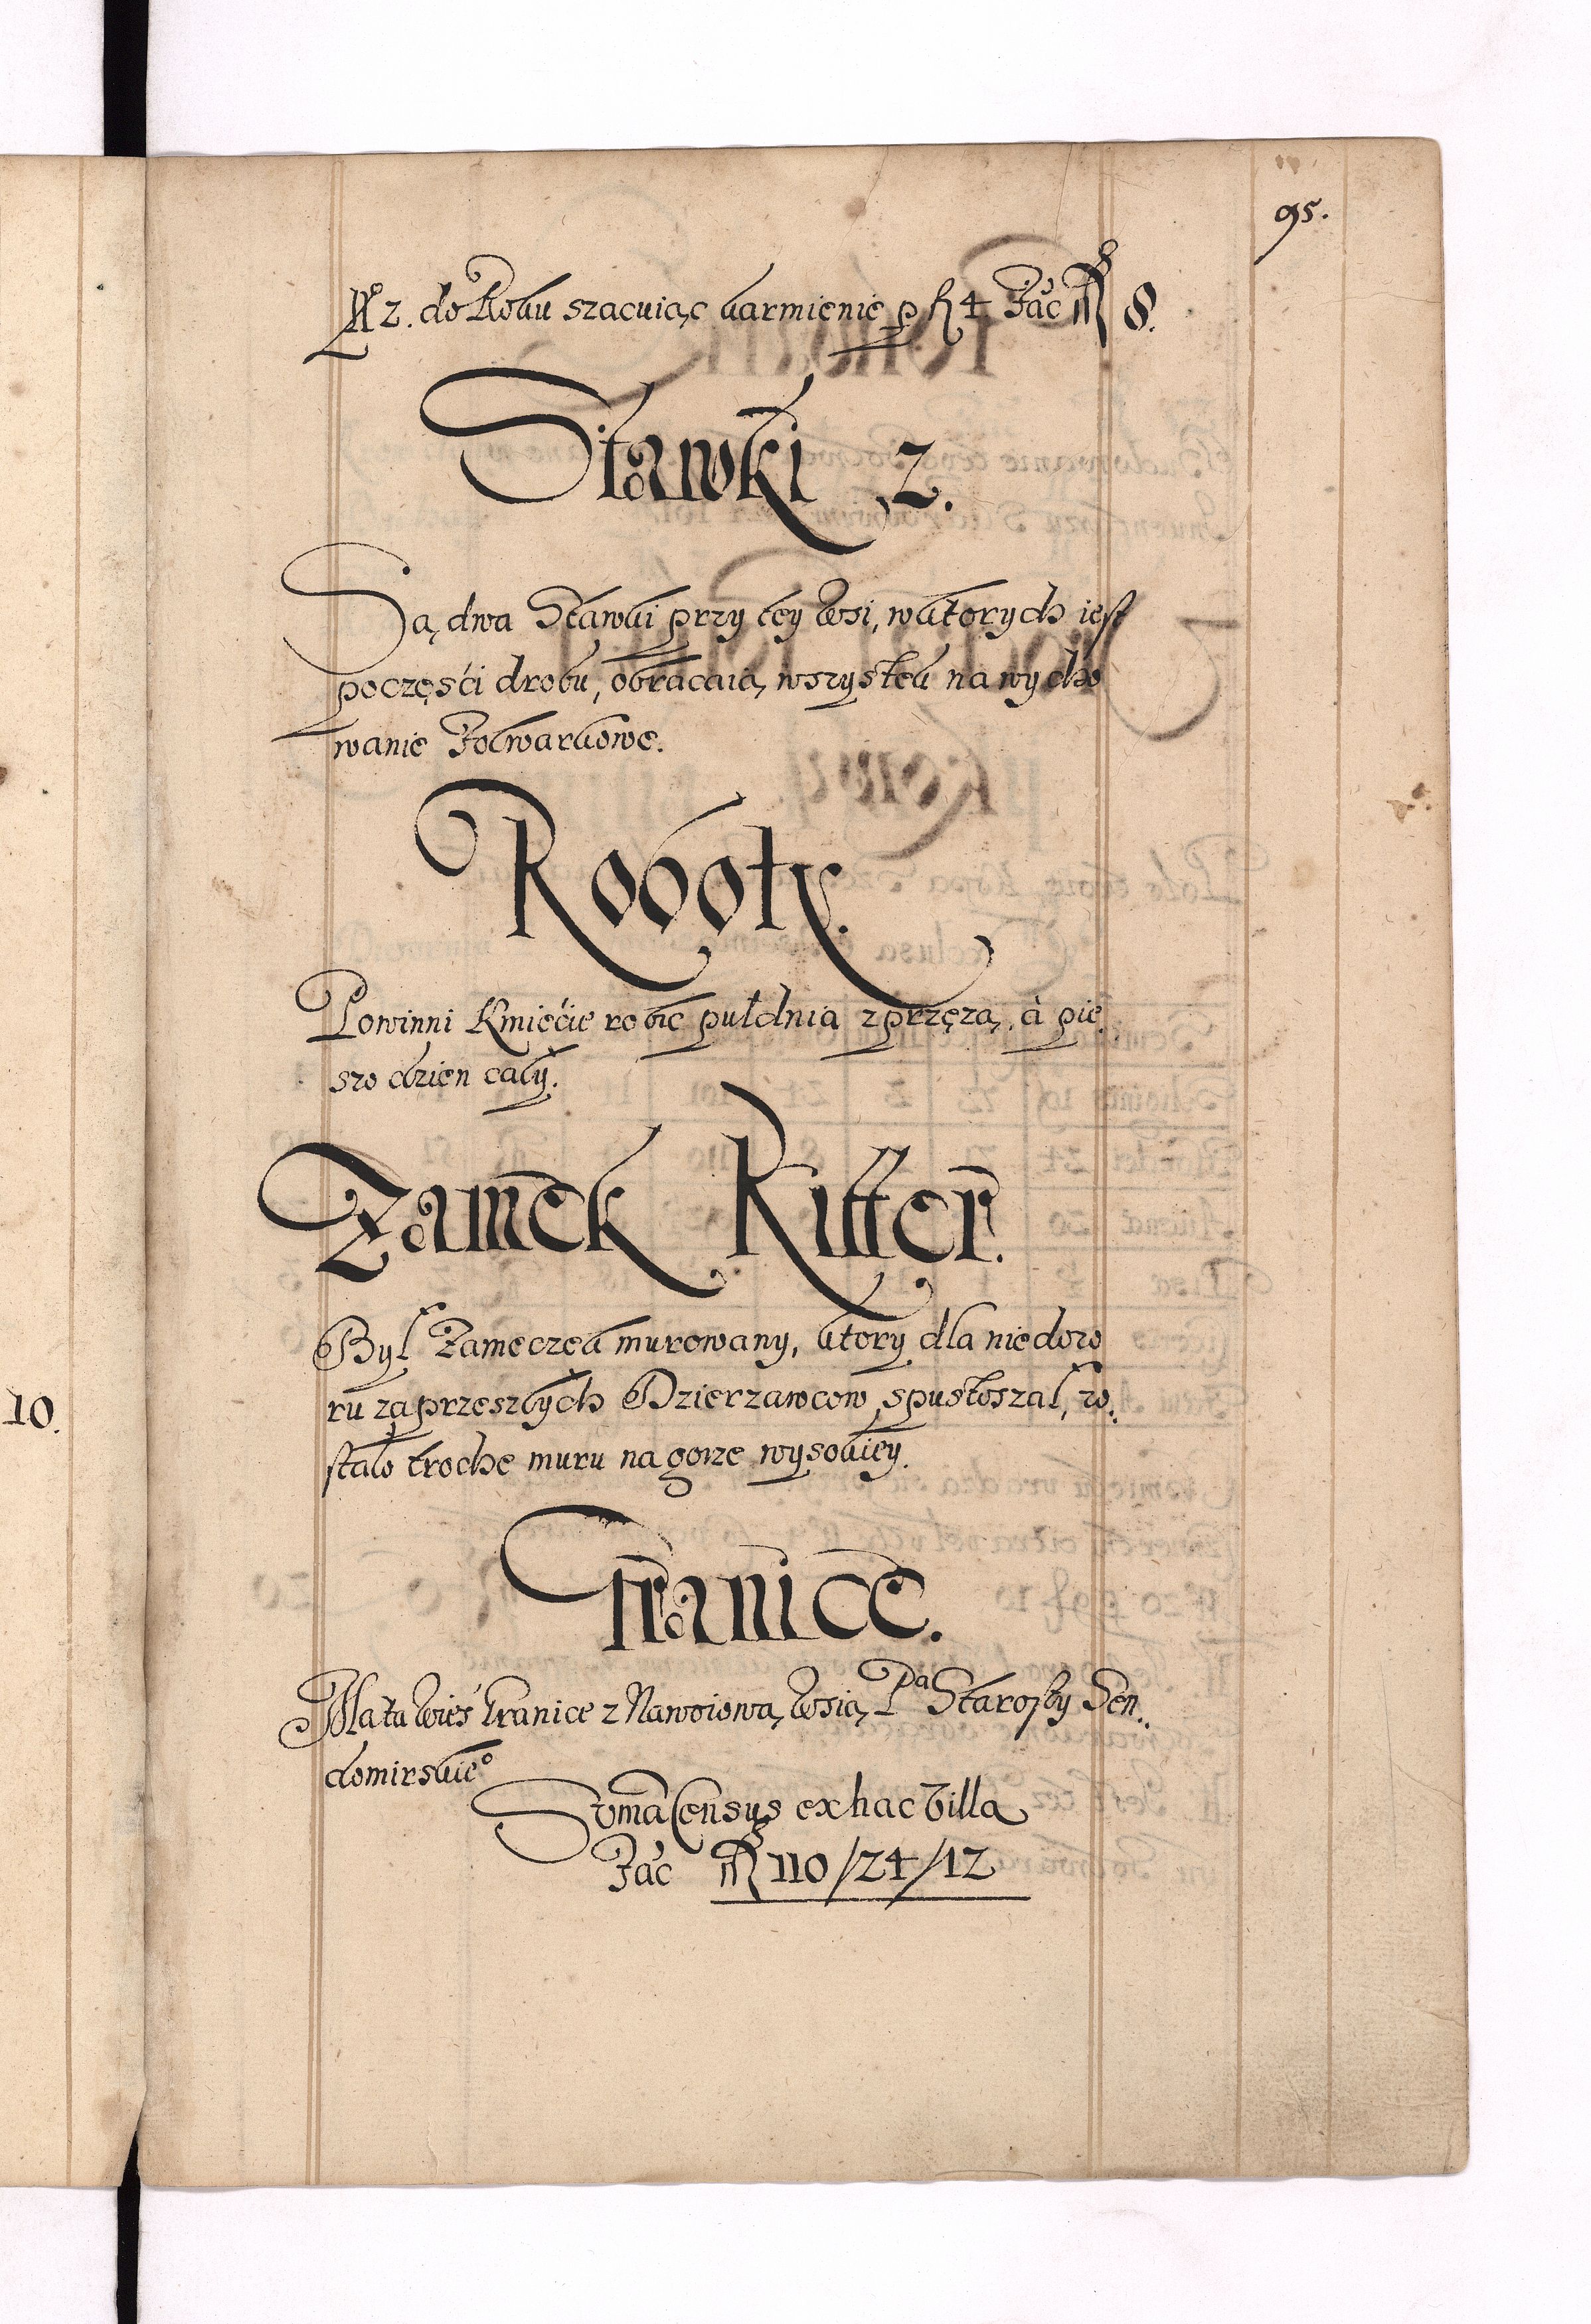 95.
Nº 2. do Roku szacuiąc karmienie p fl 4 Fác ⅌ 8.
Stawki 2.
Są dwa Stawki przy tey Wsi, w ktorych iest
poczęsći drobu, obracaią wszystek na wycho
wanie Folwarkowe.
Roboty.
Powinni Kmiećie robic puldnia zprzęzą, à pie
szo dzien caly.
Zamek Ritter.
Byl Zameczek murowany, ktory dla niedozo
ru za przeszlych Dzierzawcow spustoszal, zo,
stalo troche muru na gorze wysokiey.
Granice.
Ma ta Wieś Granice z Nawoiową Wsią Pª Starosty Sen,
domirskieº
Suma Census ex hac Villa
Fác 110/24/12
10.